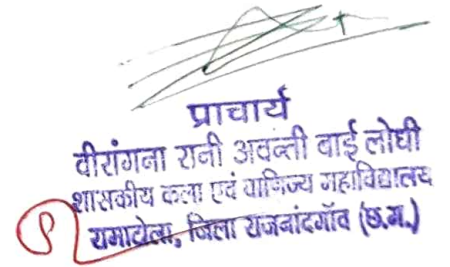 प्राचार्य
वीरांगना रानी अवन्ती बाई लोधी
शासकीय कला एवं वाणिज्य महाविद्यालय
घुमका, जिला राजनांदगॉव (छ.ग.)